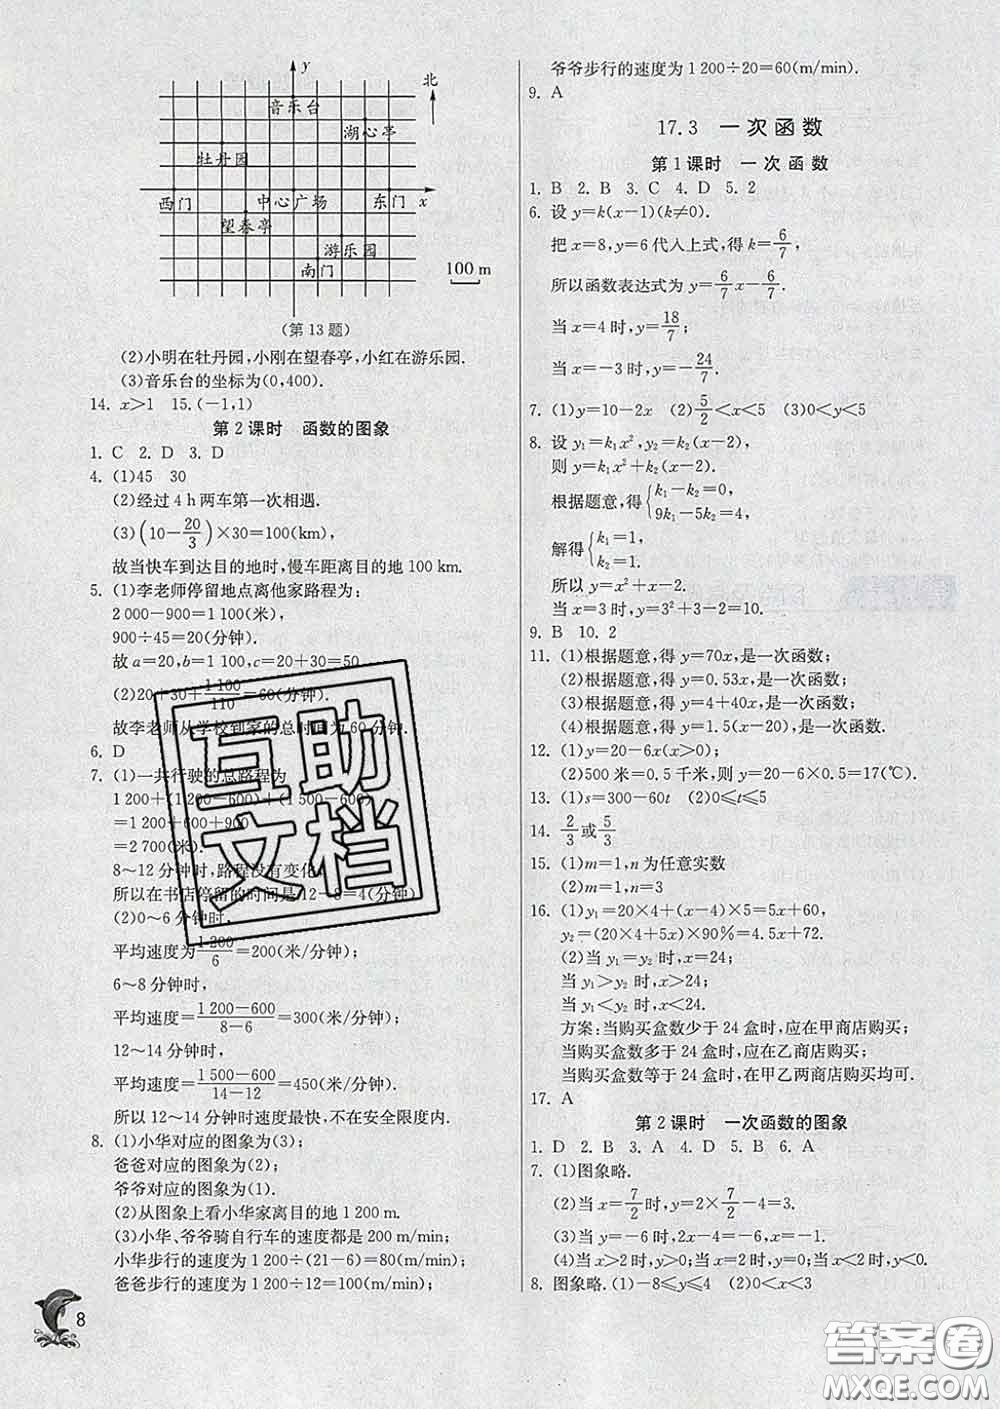 y
北
音乐台
湖心亭
牡丹园
西门 中心广场 东门 x
望春亭
游乐园
南门
100 m
(第13题)
(2)小明在牡丹园,小刚在望春亭,小红在游乐园.
(3)音乐台的坐标为(0,400).
14. x>1 15. (-1,1)
第2课时 函数的图象
1. C 2. D 3. D
4. (1)45 30
(2)经过4 h两车第一次相遇.
(3)(10-20/3)×30=100(km),
故当快车到达目的地时,慢车距离目的地100 km.
5. (1)李老师停留地点离他家路程为:
2 000-900=1 100(米),
900÷45=20(分钟).
故a=20,b=1 100,c=20+30=50
(2)20+30+1 100/110=60(分钟).
故李老师从学校到家的总时间为60分钟.
6. D
7. (1)一共行驶的总路程为
1 200+(1 200-600)+(1 500-600)
=1 200+600+900
=2 700(米).
8～12分钟时,路程没有变化,
所以在书店停留的时间是12-8=4(分钟)
(2)0～6分钟时,
平均速度为1 200/6=200(米/分钟);
6～8分钟时,
平均速度=(1 200-600)/(8-6)=300(米/分钟);
12～14分钟时,
平均速度=(1 500-600)/(14-12)=450(米/分钟).
所以12～14分钟时速度最快,不在安全限度内.
8. (1)小华对应的图象为(3);
爸爸对应的图象为(2);
爷爷对应的图象为(1).
(2)从图象上看小华家离目的地1 200 m.
(3)小华、爷爷骑自行车的速度都是200 m/min;
小华步行的速度为1 200÷(21-6)=80(m/min);
爸爸步行的速度为1 200÷12=100(m/min);
8
爷爷步行的速度为1 200÷20=60(m/min).
9. A
17.3 一次函数
第1课时 一次函数
1. B 2. B 3. C 4. D 5. 2
6. 设y=k(x-1)(k≠0).
把x=8,y=6代入上式,得k=6/7,
所以函数表达式为y=6/7x-6/7.
当x=4时,y=18/7;
当x=-3时,y=-24/7.
7. (1)y=10-2x (2)5/2<x<5 (3)0<y<5
8. 设y₁=k₁x²,y₂=k₂(x-2),
则y=k₁x²+k₂(x-2).
根据题意,得{k₁-k₂=0,
9k₁-5k₂=4,
解得{k₁=1,
k₂=1.
所以y=x²+x-2.
当x=3时,y=3²+3-2=10.
9. B 10. 2
11. (1)根据题意,得y=70x,是一次函数;
(2)根据题意,得y=0.53x,是一次函数;
(3)根据题意,得y=4+40x,是一次函数;
(4)根据题意,得y=1.5(x-20),是一次函数.
12. (1)y=20-6x(x>0);
(2)500米=0.5千米,则y=20-6×0.5=17(℃).
13. (1)s=300-60t (2)0≤t≤5
14. 2/3或5/3
15. (1)m=1,n为任意实数
(2)m=1,n=3
16. (1)y₁=20×4+(x-4)×5=5x+60,
y₂=(20×4+5x)×90%=4.5x+72.
(2)当y₁=y₂时,x=24;
当y₁>y₂时,x>24;
当y₁<y₂时,x<24.
方案:当购买盒数少于24盒时,应在甲商店购买;
当购买盒数多于24盒时,应在乙商店购买;
当购买盒数等于24盒时,在甲乙两商店购买均可.
17. A
第2课时 一次函数的图象
1. D 2. B 3. A 4. D 5. B 6. A
7. (1)图象略.
(2)当x=7/2时,y=2×7/2-4=3.
(3)当y=-6时,2x-4=-6,x=-1.
(4)当x>2时,y>0;当x=2时,y=0;当x<2时,y<0.
8. 图象略.(1)-8≤y≤4 (2)0<x<3
互助
文档
答案圈
MXQE.COM